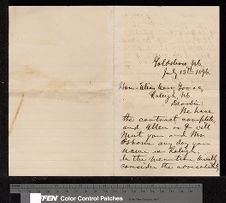 Goldsboro, N.C.
July 13th 1896.
Hon. Elias Carr
Raleigh, N.C.
Dear Sir:
We have
the contract complete,
and Allen or I will
meet you and Mr.
Osborne any day you
name in Raleigh.
In the meantime kindly
consider the advisability
TIFFEN Color Control Patches